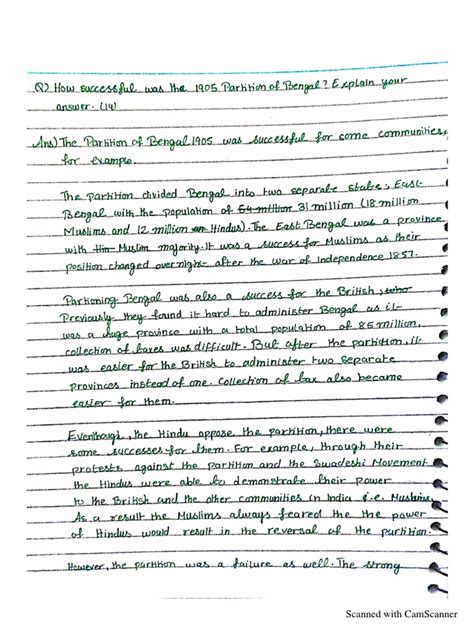 Q) How successful was the 1905 Partition of Bengal? Explain your
answer. (14)
Ans) The Partition of Bengal 1905 was successful for some communities,
for example.
The partition divided Bengal into two separate states; East
Bengal with the population of 54 million 31 million (18 million
Muslims and 12 million Hindus). The East Bengal was a province
with Muslim majority. It was a success for Muslims as their
position changed overnight after the War of Independence 1857.
Partioning Bengal was also a success for the British,
Previously they found it hard to administer Bengal as it
was a huge province with a total population of 85 million,
collection of taxes was difficult. But after the partition, it
was easier for the British to administer two separate
provinces instead of one. Collection of tax also became
easier for them.
Eventhough, the Hindu oppose the partition, there were
some successes for them. For example, through their
protests against the partition and the Swadeshi Movement
the Hindus were able to demonstrate their power
to the British and the other communities in India i.e. Muslims.
As a result the Muslims always feared the the power
of Hindus would result in the reversal of the partition.
However, the partition was a failure as well. The strong
Scanned with CamScanner